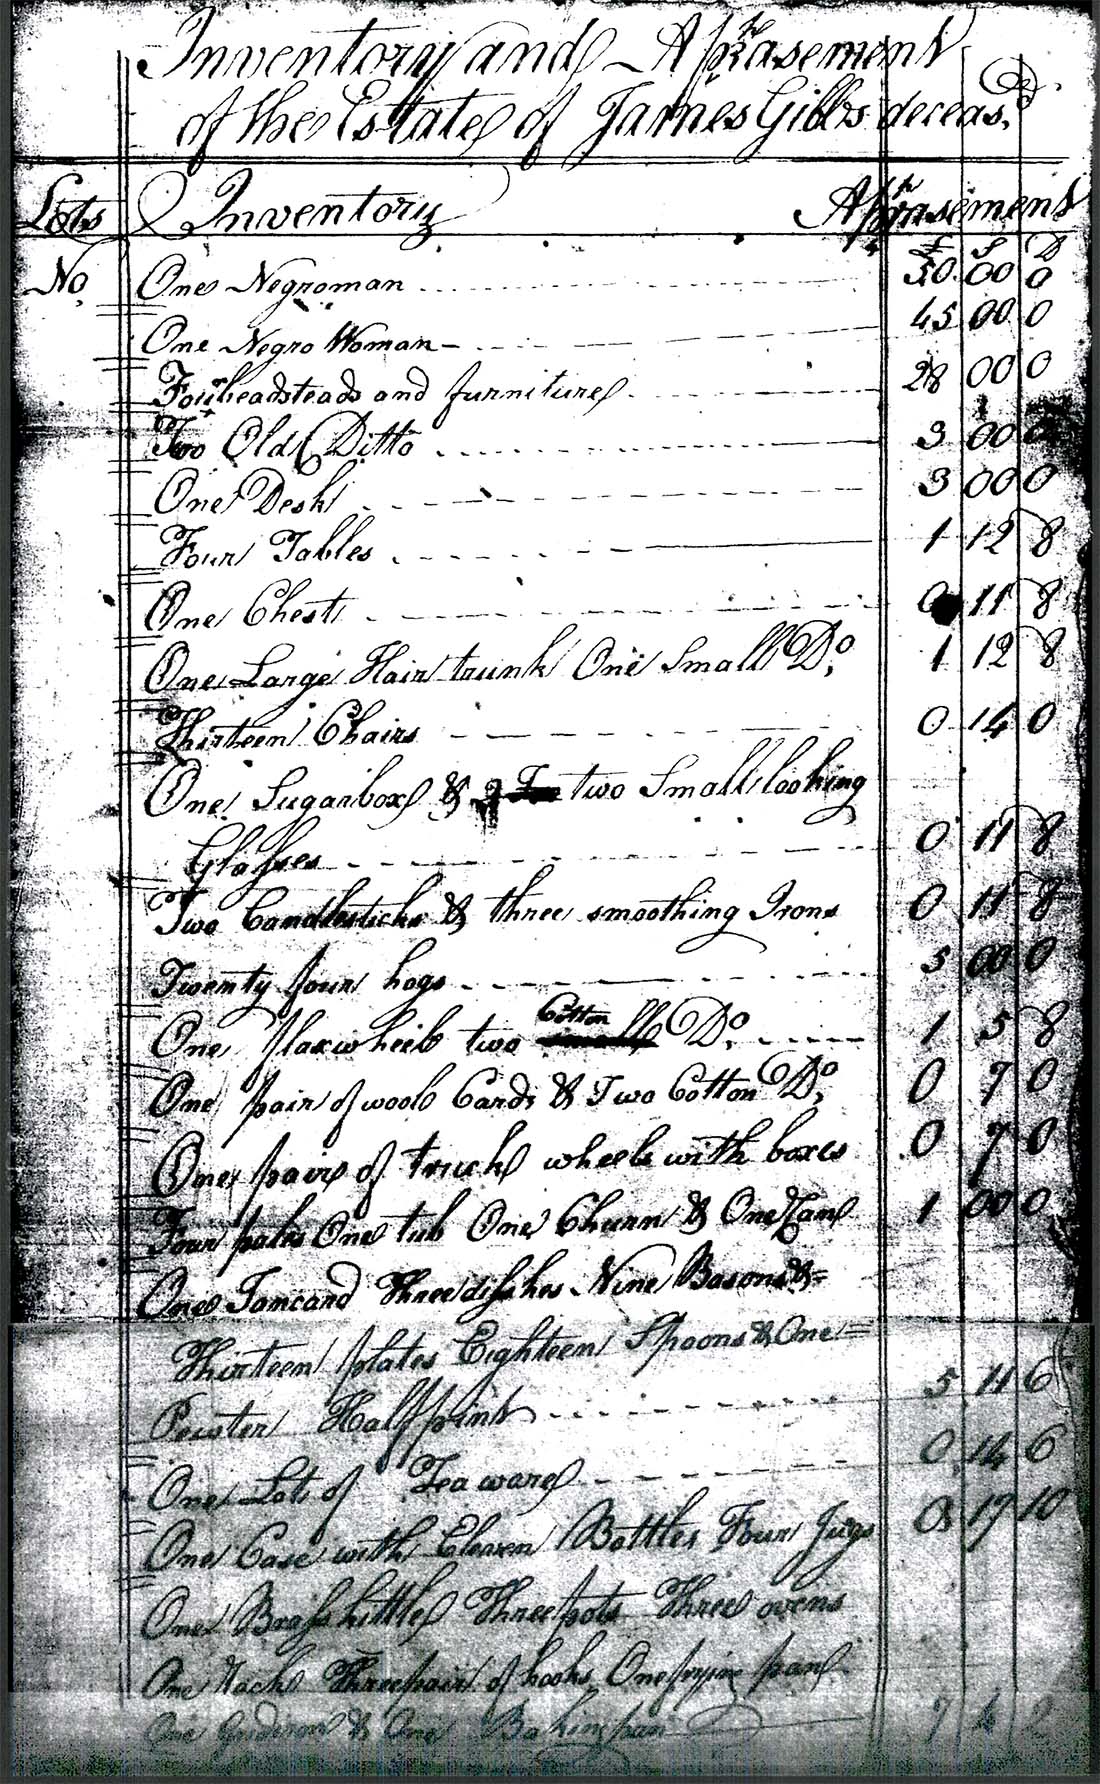 Inventory and Aprasement
of the Estate of James Gibbs deceas.d
Lots Inventory Aprasement
£ S D
No. One Negroman 50 00 0
One Negro Woman 45 00 0
Four beadsteads and furniture 28 00 0
Two Old Ditto 3 00 0
One Desk 3 00 0
Four Tables 1 12 8
One Chest 0 11 8
One Large Hair trunk One Small Do. 1 12 8
Thirteen Chairs 0 14 0
One Sugarbox & two Small looking
Glasses 0 11 8
Two Candlesticks & three smoothing Irons 0 11 8
Twenty four hogs 5 00 0
One flaxwheel two Cotton small Do. 1 5 8
One pair of wool Cards & Two Cotton Do. 0 7 0
One paire of truck wheels with boxes 0 7 0
Four pales One tub One Churn & One Can 1 00 0
One Tancard Three dishes Nine Basons &=
Thirteen plates Eighteen Spoons & One=
Pewter Half pint 5 11 6
One Lot of Tea ware 0 14 6
One Case with Eleaven Bottles Four Jugs 0 17 10
One Brass kittle Three pots Three ovens
One Rack Three pair of hooks One frying pan
One Gridiron & One Baking pan 7 4